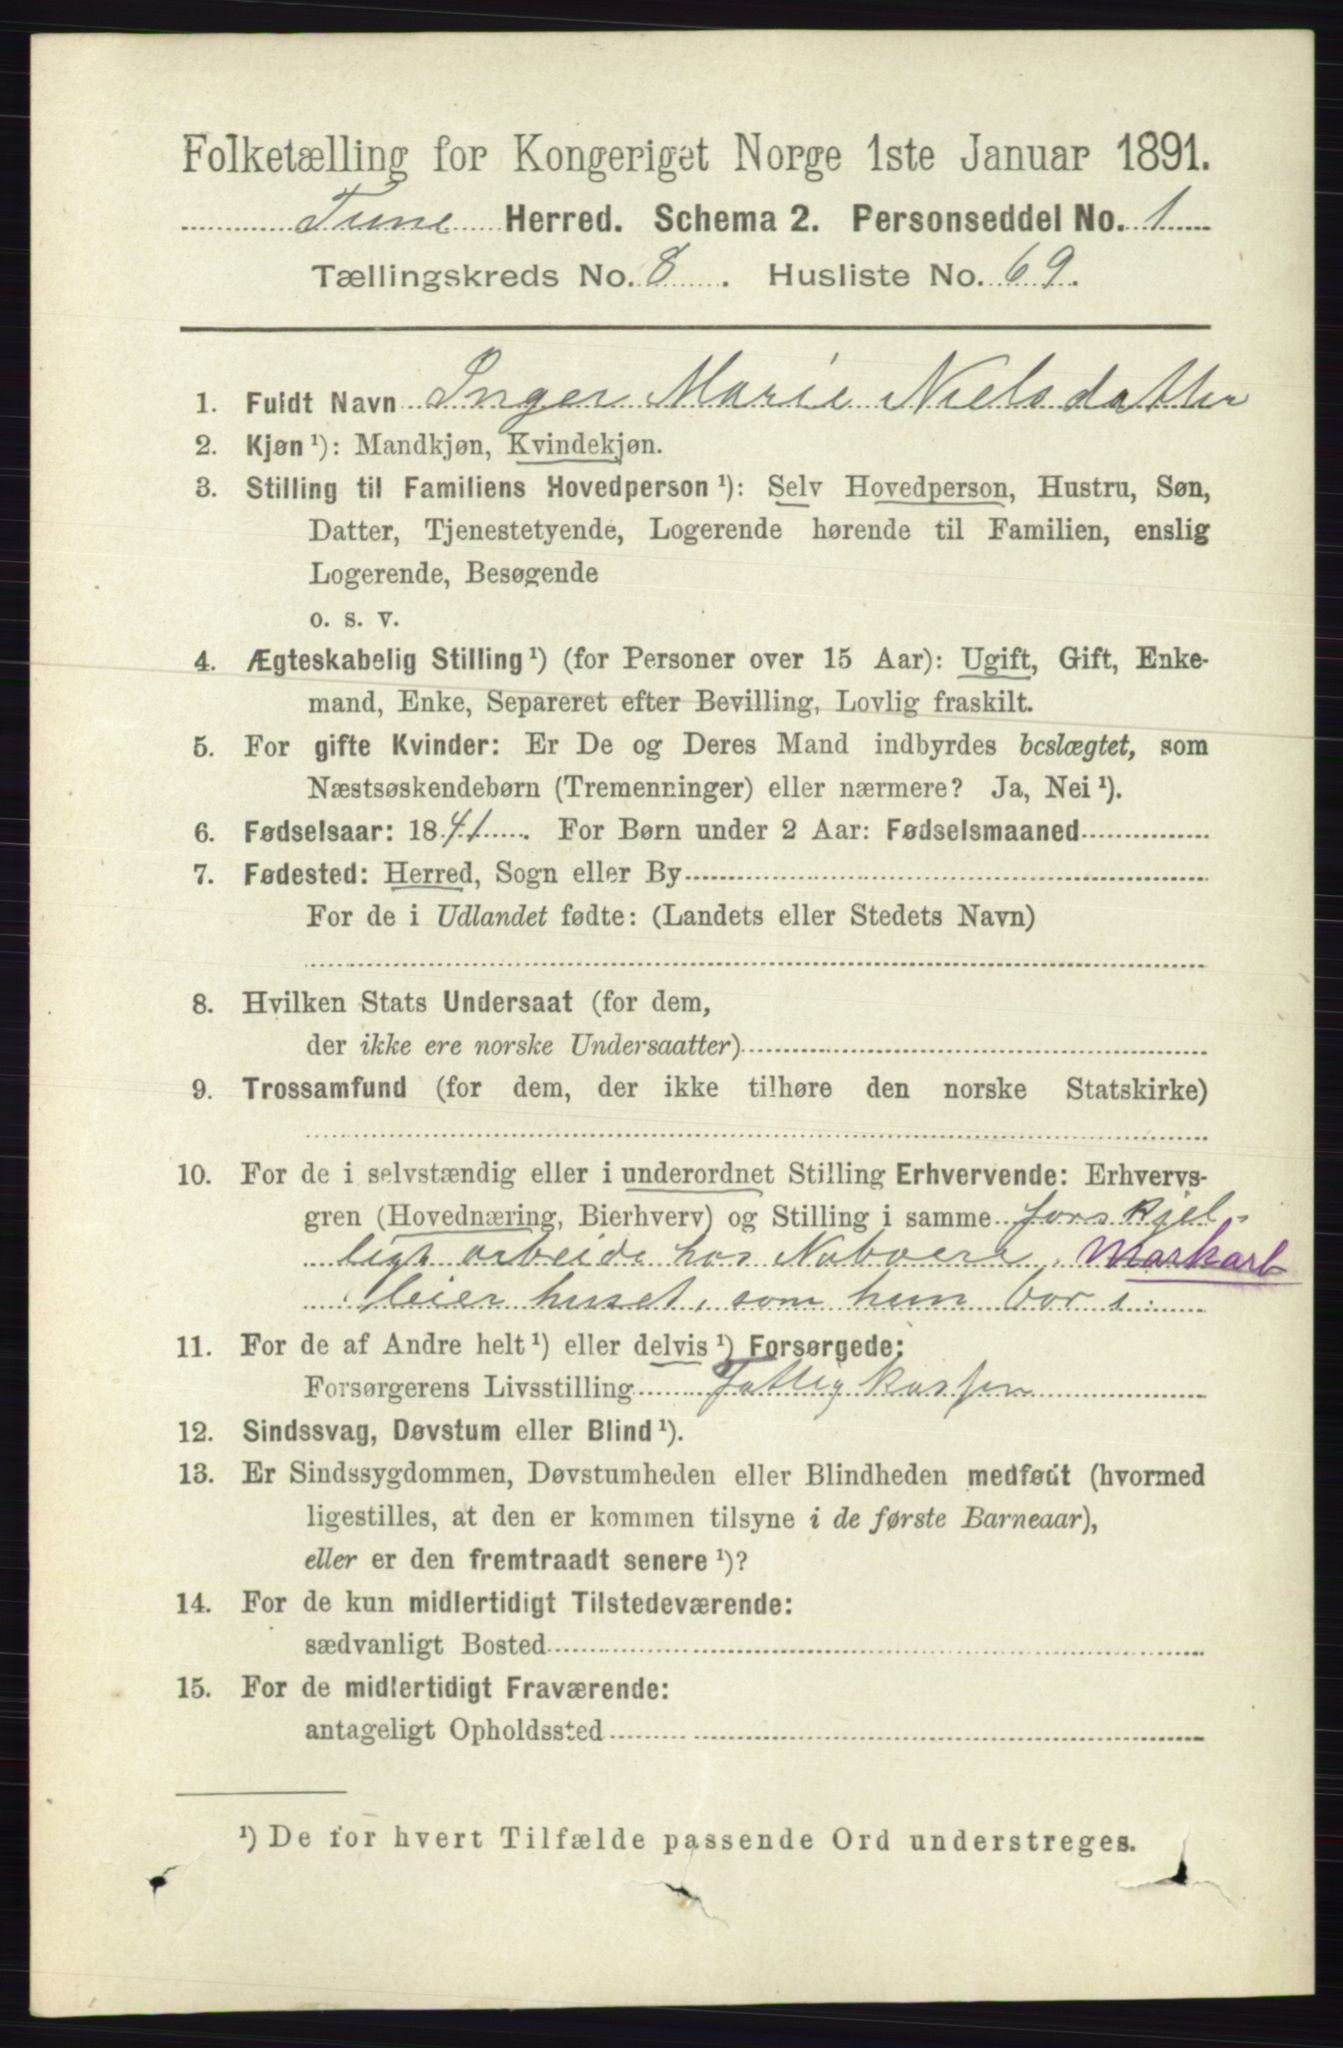 Folketælling for Kongeriget Norge 1ste Januar 1891.
Tune Herred. Schema 2. Personseddel No. 1
Tællingskreds No. 8. Husliste No. 69.
1. Fuldt Navn Inger Marie Nielsdatter
2. Kjøn ¹): Mandkjøn, Kvindekjøn.
3. Stilling til Familiens Hovedperson ¹): Selv Hovedperson, Hustru, Søn,
Datter, Tjenestetyende, Logerende hørende til Familien, enslig
Logerende, Besøgende
o. s. v.
4. Ægteskabelig Stilling ¹) (for Personer over 15 Aar): Ugift, Gift, Enke-
mand, Enke, Separeret efter Bevilling, Lovlig fraskilt.
5. For gifte Kvinder: Er De og Deres Mand indbyrdes beslægtet, som
Næstsøskendebørn (Tremenninger) eller nærmere? Ja, Nei ¹).
6. Fødselsaar: 1841. For Børn under 2 Aar: Fødselsmaaned
7. Fødested: Herred, Sogn eller By
For de i Udlandet fødte: (Landets eller Stedets Navn)
8. Hvilken Stats Undersaat (for dem,
der ikke ere norske Undersaatter)
9. Trossamfund (for dem, der ikke tilhøre den norske Statskirke)
10. For de i selvstændig eller i underordnet Stilling Erhvervende: Erhvervs-
gren (Hovednæring, Bierhverv) og Stilling i samme forskjel-
ligt arbeide hos Naboere. Markarb
leier huset, som hun bor i.
11. For de af Andre helt ¹) eller delvis ¹) Forsørgede:
Forsørgerens Livsstilling Fattigkassen
12. Sindssvag, Døvstum eller Blind ¹).
13. Er Sindssygdommen, Døvstumheden eller Blindheden medfødt (hvormed
ligestilles, at den er kommen tilsyne i de første Barneaar),
eller er den fremtraadt senere ¹)?
14. For de kun midlertidigt Tilstedeværende:
sædvanligt Bosted
15. For de midlertidigt Fraværende:
antageligt Opholdssted
¹) De for hvert Tilfælde passende Ord understreges.